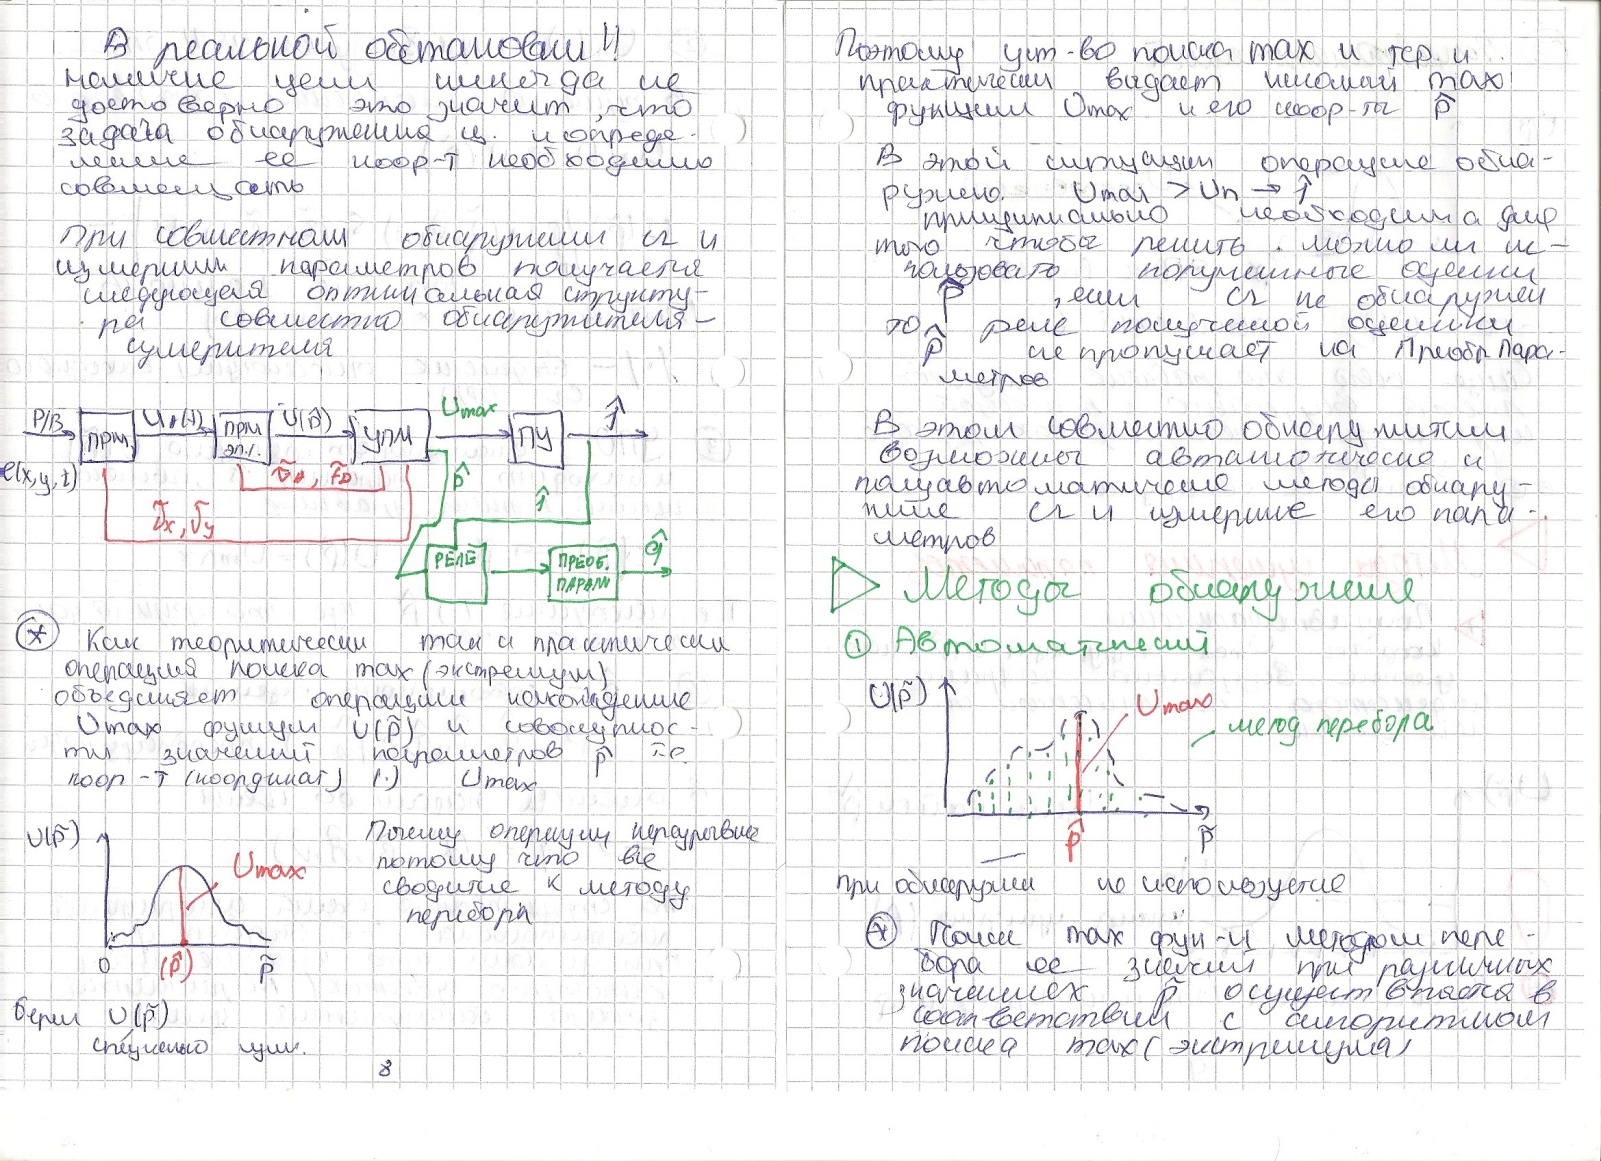 В реальной обстановки!!
наличие цели иногда не
достоверно это значит, что
задача обнаружения ц. и опреде-
ление ее коор-т необходимо
совмещать
При совместном обнаружении сг и
измерении параметров получается
следующая оптимальная структу-
ра совместно обнаружителя-
измерителя
Р/В
e(x,y,t)
ПРМ
ПРМ
эп.1.
U(p̃)
УПМ
Umax
ПУ
1̂
ṽx, ṽy
p̂
1̂
РЕЛЕ
ПРЕОБ.
ПАРАМ
q̂
* Как теоритически так и практически
операция поиска max (экстремум)
объединяет операции нахождение
Umax функции U(p̃) и совокупнос-
ти значений параметров p̂ т.е.
коор-т (координат) (·) Umax
U(p̃)
Umax
0
(p̂)
p̃
Почему операции неразрывные
потому что все
сводится к методу
перебора
Берем U(p̃)
8
Поэтому уст-во поиска max и тер. и
практически выдает искомый max
функции Umax и его коор-ты p̂
В этой ситуации операция обна-
ружено. Umax > Uп → 1̂
принципиально необходима для
того чтобы решить можно ли ис-
пользовать полученные оценки
p̂, если сг не обнаружен
то реле полученной оценки
p̂ не пропускает на Преобр Пара-
метров
В этом совместно обнаружители
возможны автоматические и
полуавтоматичение методы обнару-
жние сг и измерние его пара-
метров
Методы обнаружние
① Автоматический
U(p̃)
Umax
метод перебора
p̂
p̃
при обнаружении не используется
* Поиск max фун-и методом пере-
бора ее значний при различных
значениях p̃ осуществляется в
соответствии с алгоритмом
поиска max (экстремума)